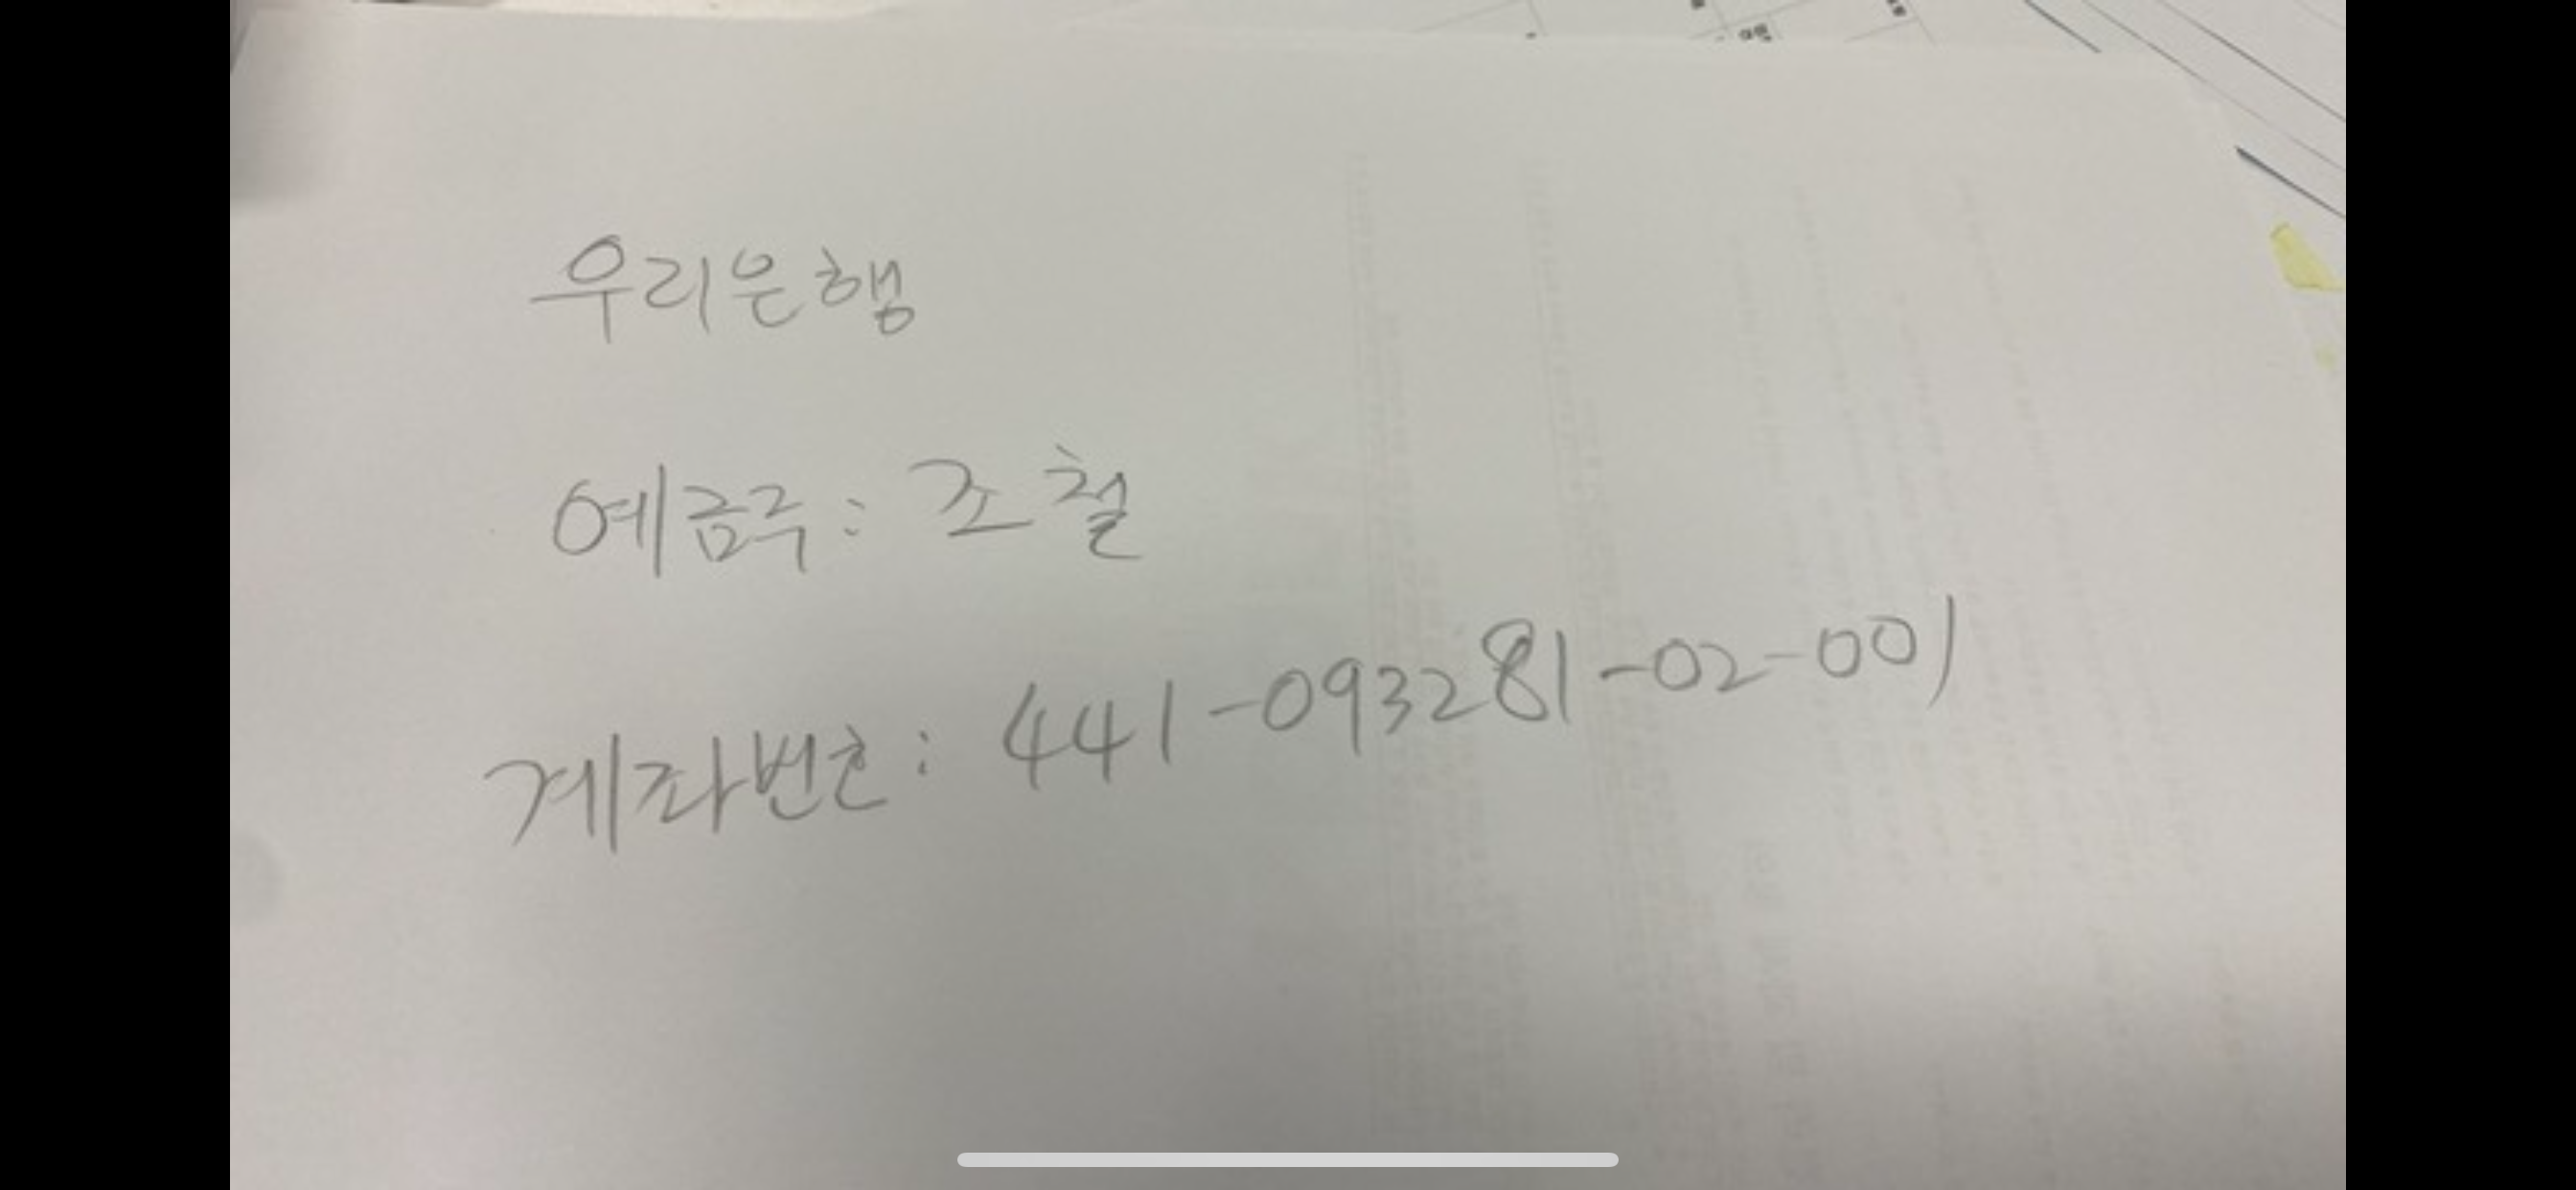 우리은행
예금주: 조철
계좌번호: 441-093281-02-001